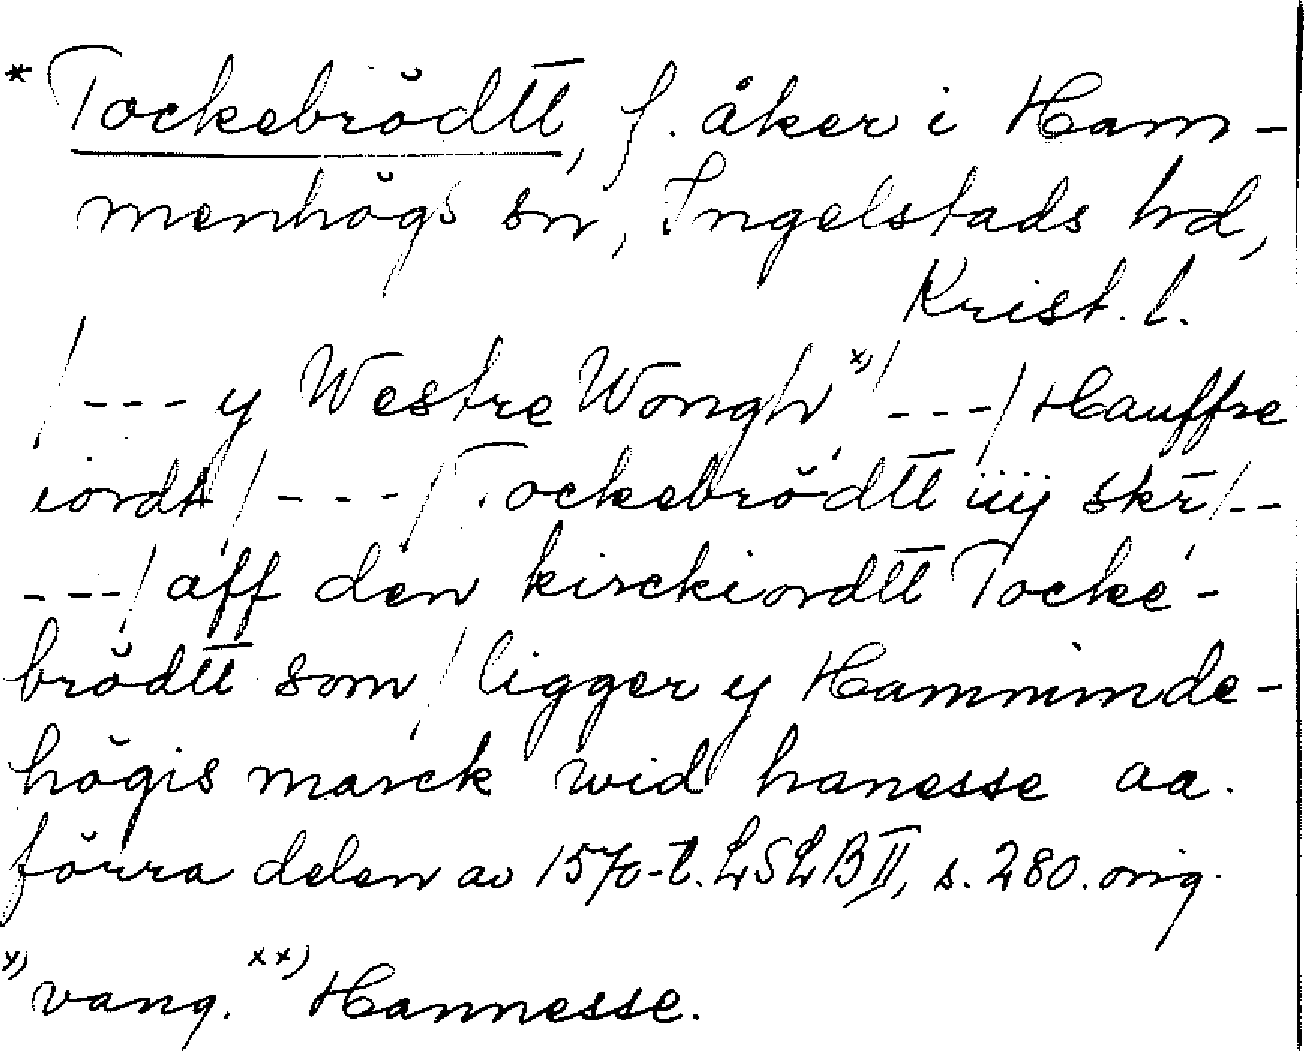 * Tockebrödtt, f. åker i Ham-
menhögs sn, Ingelstads hd,
Krist. l.
/--- y Westre Wongh,x) / ---/ Hauffre
iordt / ---/ Tockebrödtt iiij skr /--
---/ aff den kirckiordtt Tocke-
brödtt som / ligger y Hamminde-
högis marck wid hanesse aa.
förra delen av 1570-t. LSLB II, s. 280. orig.
x) vang. xx) Hannesse.